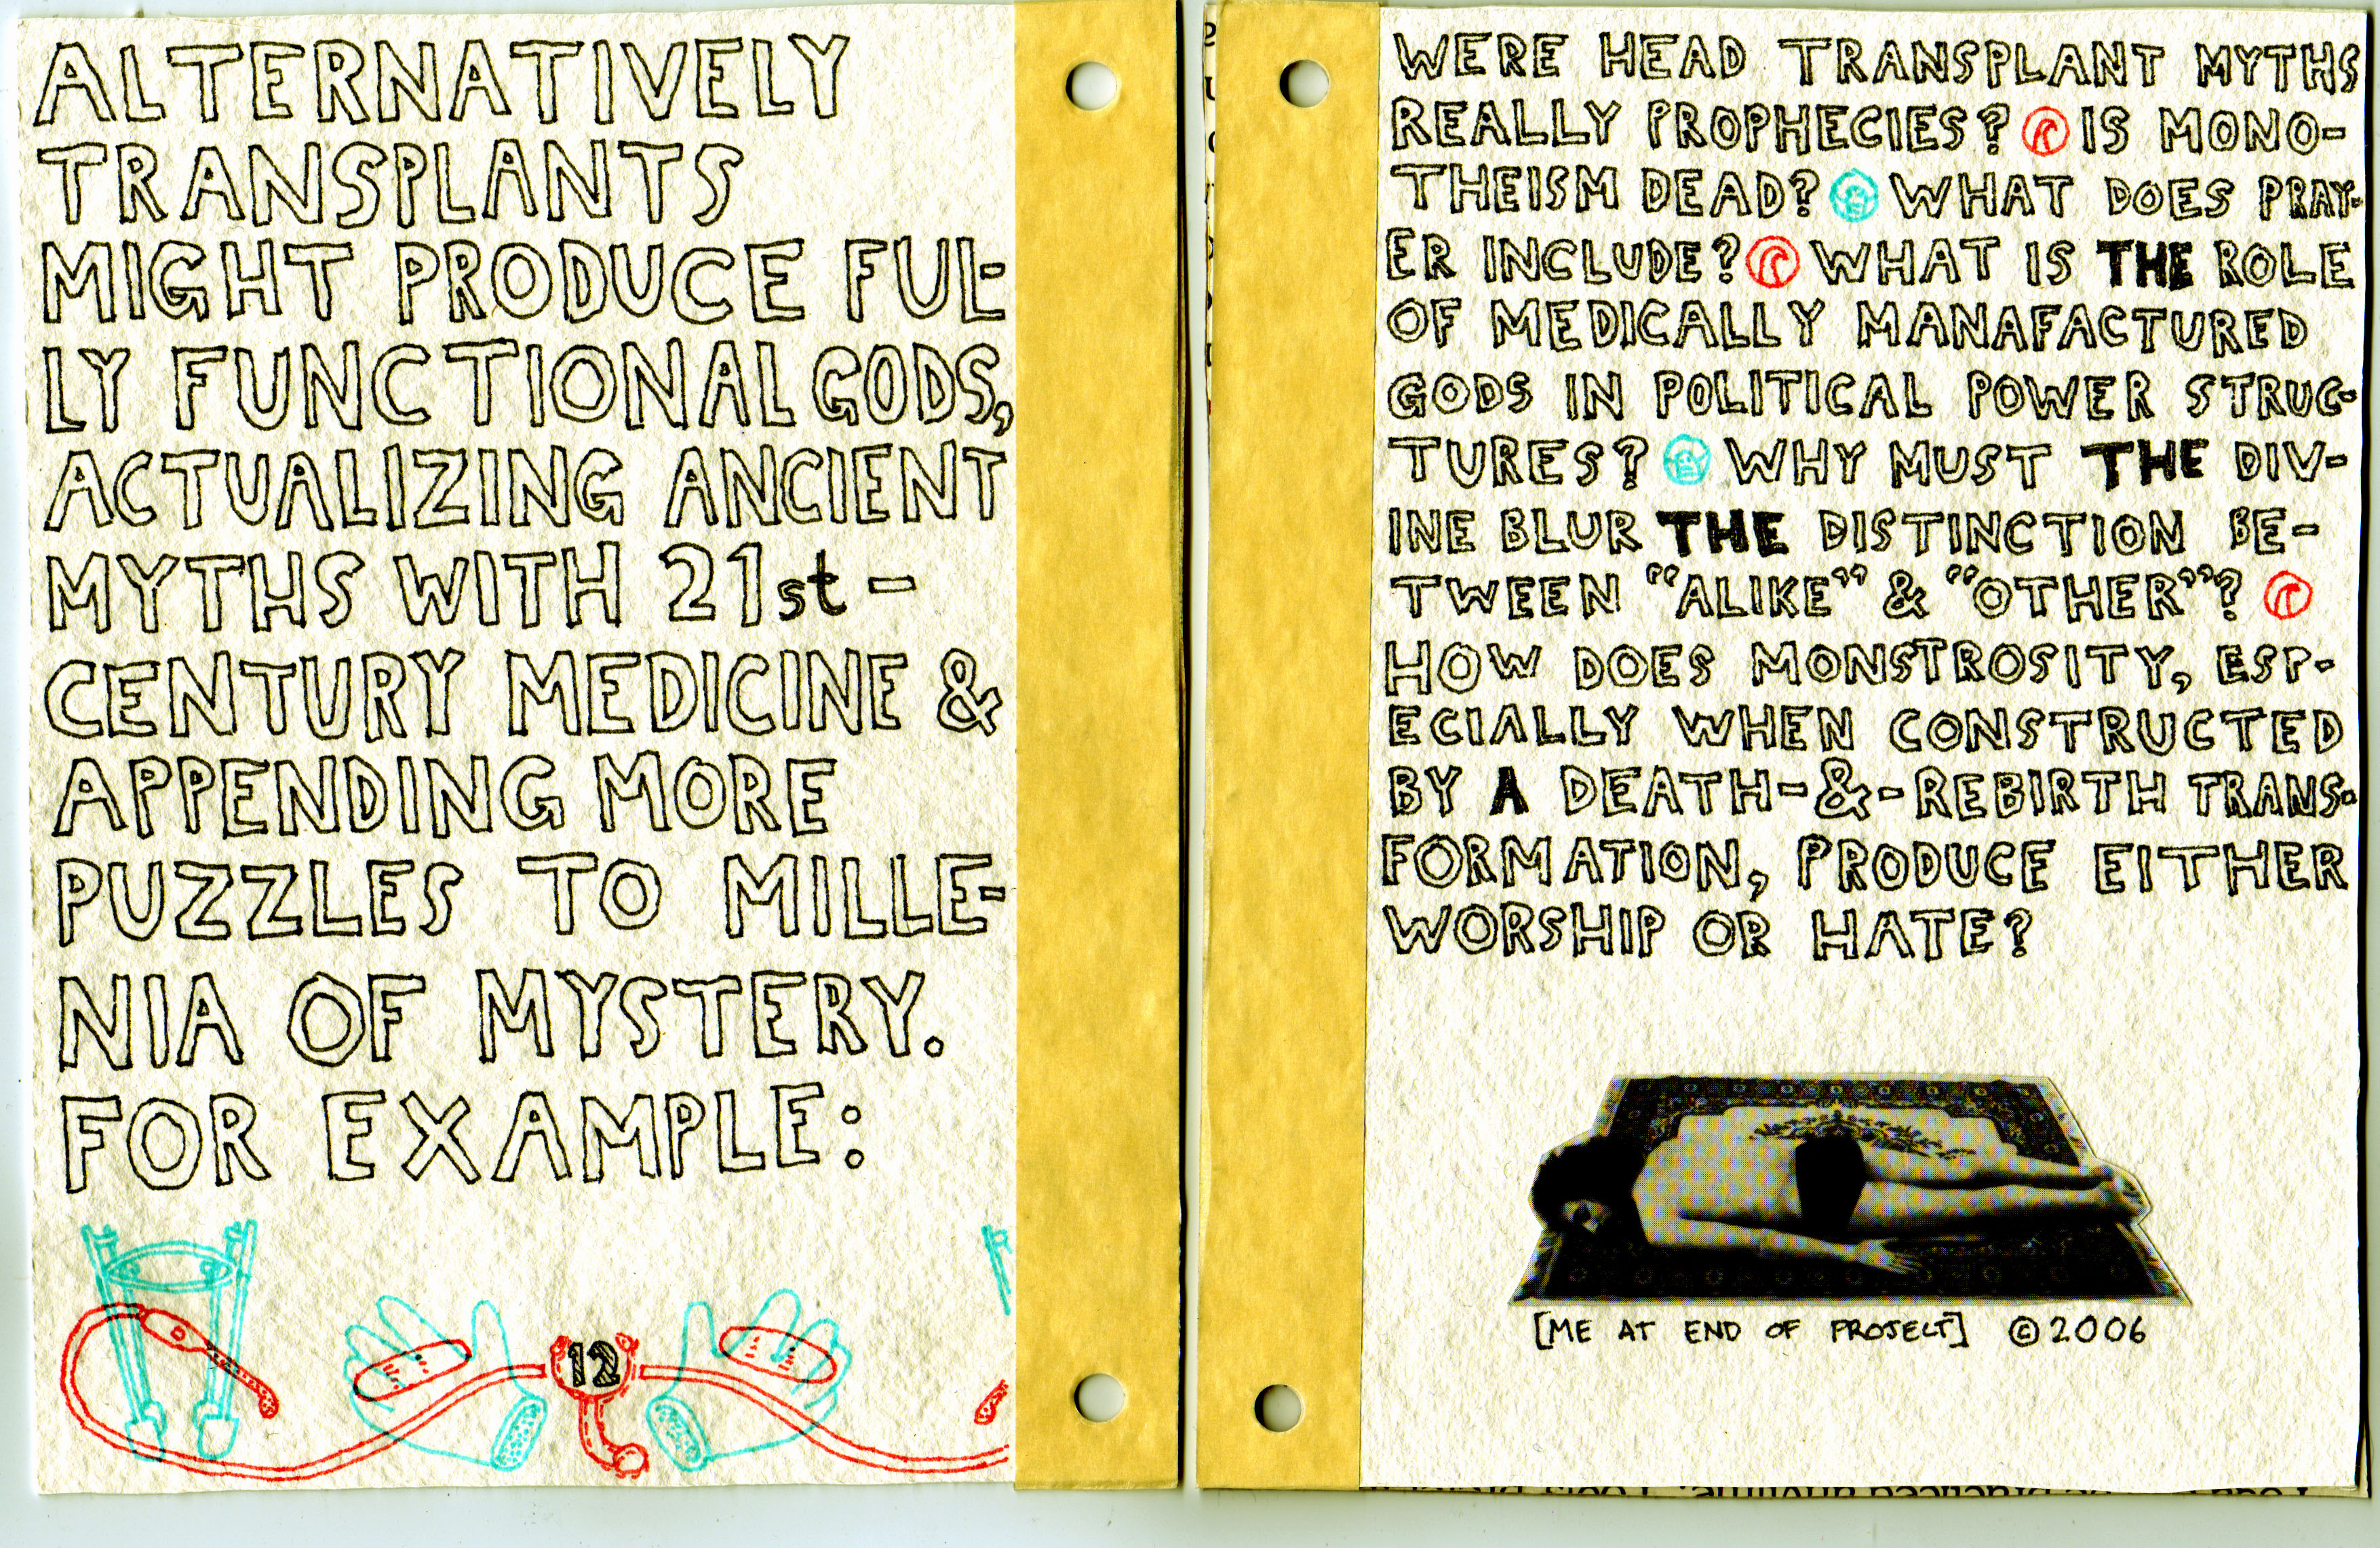 ALTERNATIVELY
TRANSPLANTS
MIGHT PRODUCE FUL-
LY FUNCTIONAL GODS,
ACTUALIZING ANCIENT
MYTHS WITH 21st-
CENTURY MEDICINE &
APPENDING MORE
PUZZLES TO MILLE-
NIA OF MYSTERY.
FOR EXAMPLE:
12
WERE HEAD TRANSPLANT MYTHS
REALLY PROPHECIES? IS MONO-
THEISM DEAD? WHAT DOES PRAY-
ER INCLUDE? WHAT IS THE ROLE
OF MEDICALLY MANAFACTURED
GODS IN POLITICAL POWER STRUC-
TURES? WHY MUST THE DIV-
INE BLUR THE DISTINCTION BE-
TWEEN "ALIKE" & "OTHER"?
HOW DOES MONSTROSITY, ESP-
ECIALLY WHEN CONSTRUCTED
BY A DEATH-&-REBIRTH TRANS-
FORMATION, PRODUCE EITHER
WORSHIP OR HATE?
[ME AT END OF PROJECT] ©2006